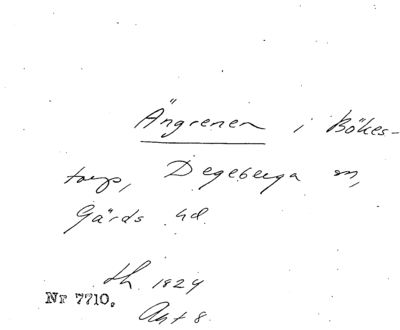 Ängrenen i Bökes-
torp, Degeberga sn,
Gärds hd.
lh. 1824
Nr 7710.
Akt 8